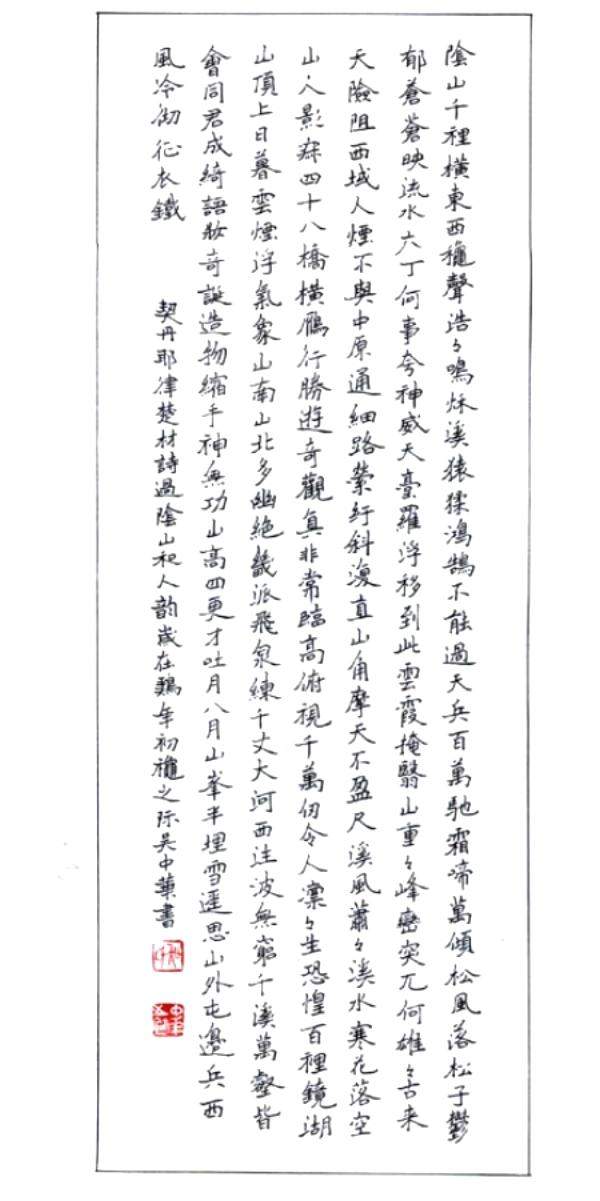 陰山千裡橫東西龝聲浩々鳴秌溪猿猱鴻鵠不能過天兵百萬馳霜啼萬傾松風落松子鬱
郁蒼蒼映流水六丁何事夸神威天臺羅浮移到此雲霞掩翳山重々峰巒突兀何雄々古来
天險阻西域人煙不與中原通細路縈紆斜復直山角摩天不盈尺溪風蕭々溪水寒花落空
山人影寂四十八橋橫鴈行勝遊奇觀真非常臨高俯視千萬仞令人凜々生恐惶百裡鏡湖
山頂上日暮雲煙浮氣象山南山北多幽絕幾派飛泉練千丈大河西注波無窮千溪萬壑皆
會同君成綺語妝奇誕造物縮手神無功山高四更才吐月八月山峯半埋雪遥思山外屯邊兵西
風冷彻征衣鐵
契丹耶律楚材詩過陰山和人韵歲在鷄年初龝之际吴中華書